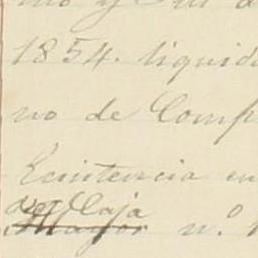 y
1854. liquid
no de Comp
Existencia en
de Caja
Mayor n.º